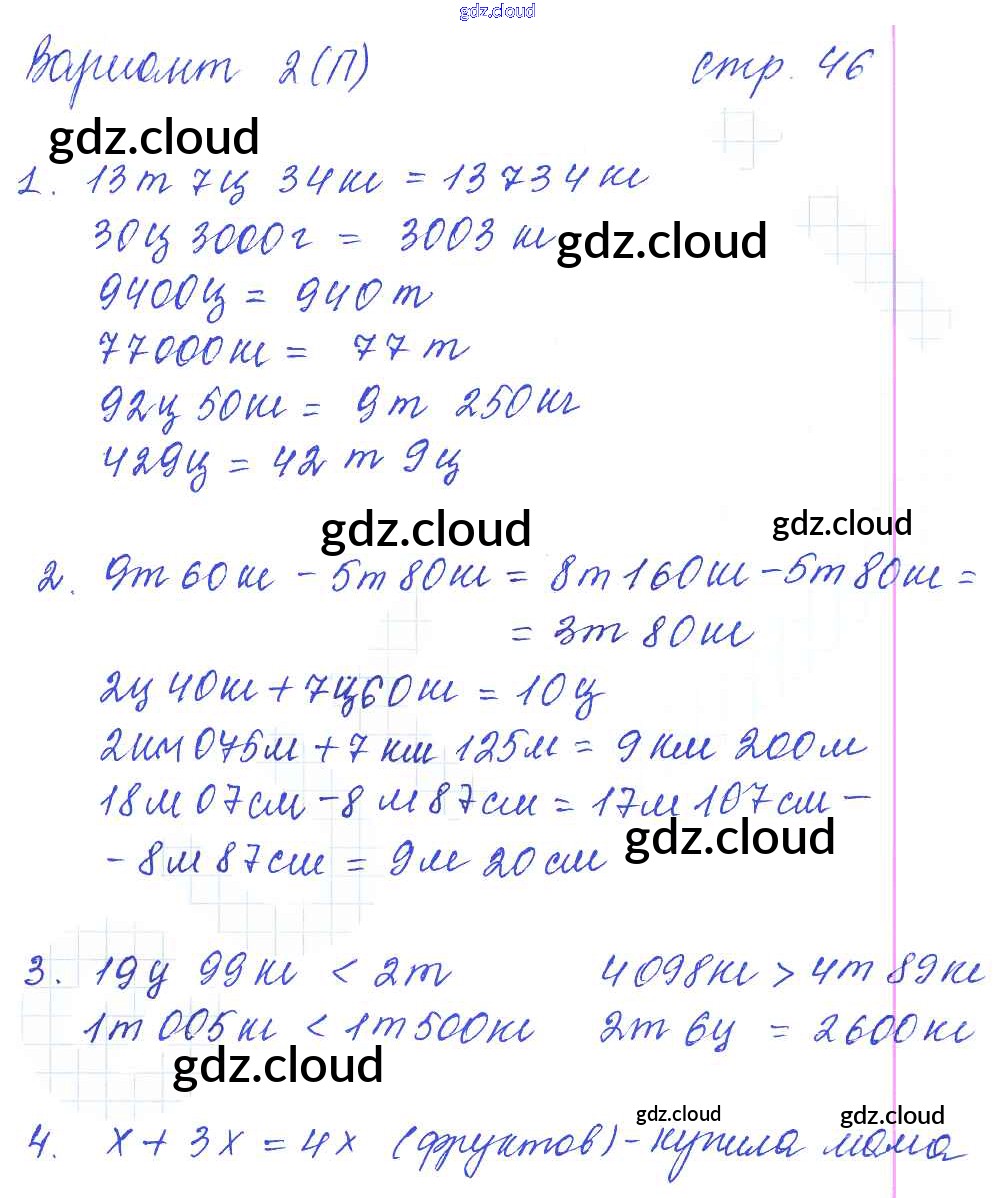 gdz.cloud
Вариант 2(П) стр. 46
gdz.cloud
1. 13т 7ц 34кг = 13734кг
30ц 3000г = 3003 кг gdz.cloud
9400ц = 940 т
77000кг = 77 т
92ц 50кг = 9т 250кг
429ц = 42 т 9ц
gdz.cloud gdz.cloud
2. 9т 60кг - 5т 80кг = 8т 1 60кг - 5т 80кг =
= 3т 80кг
2ц 40кг + 7ц 60кг = 10 ц
2км 075м + 7 км 125м = 9 км 200м
18м 07см - 8 м 87см = 17м 107см -
gdz.cloud
- 8м 87см = 9м 20 см
3. 19ц 99кг < 2т 4098кг > 4т 89кг
1т 005кг < 1т 500кг 2т 6ц = 2600кг
gdz.cloud
gdz.cloud gdz.cloud
4. x + 3x = 4x (фруктов) - купила мама